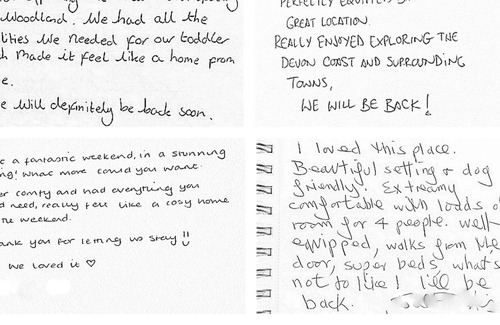 Woodland. We had all the
lities we needed for our toddler
ch made it feel like a home from
e.
e will definitely be back soon.
PERFECTLY EQUIPPED
GREAT LOCATION.
REALLY ENJOYED EXPLORING THE
DEVON COAST AND SURROUNDING
TOWNS,
WE WILL BE BACK!
a fantastic weekend, in a stunning
ng! What more could you want.
er comfy and had everything you
d need, really felt like a cosy home
the weekend.
ank you for letting us stay!!
We loved it ♡
I loved this place.
Beautiful setting & dog
friendly. Extreamy
comfortable with loads o
room for 4 people. Well
equipped, walks from the
door, super beds, what's
not to like! I'll be
back.